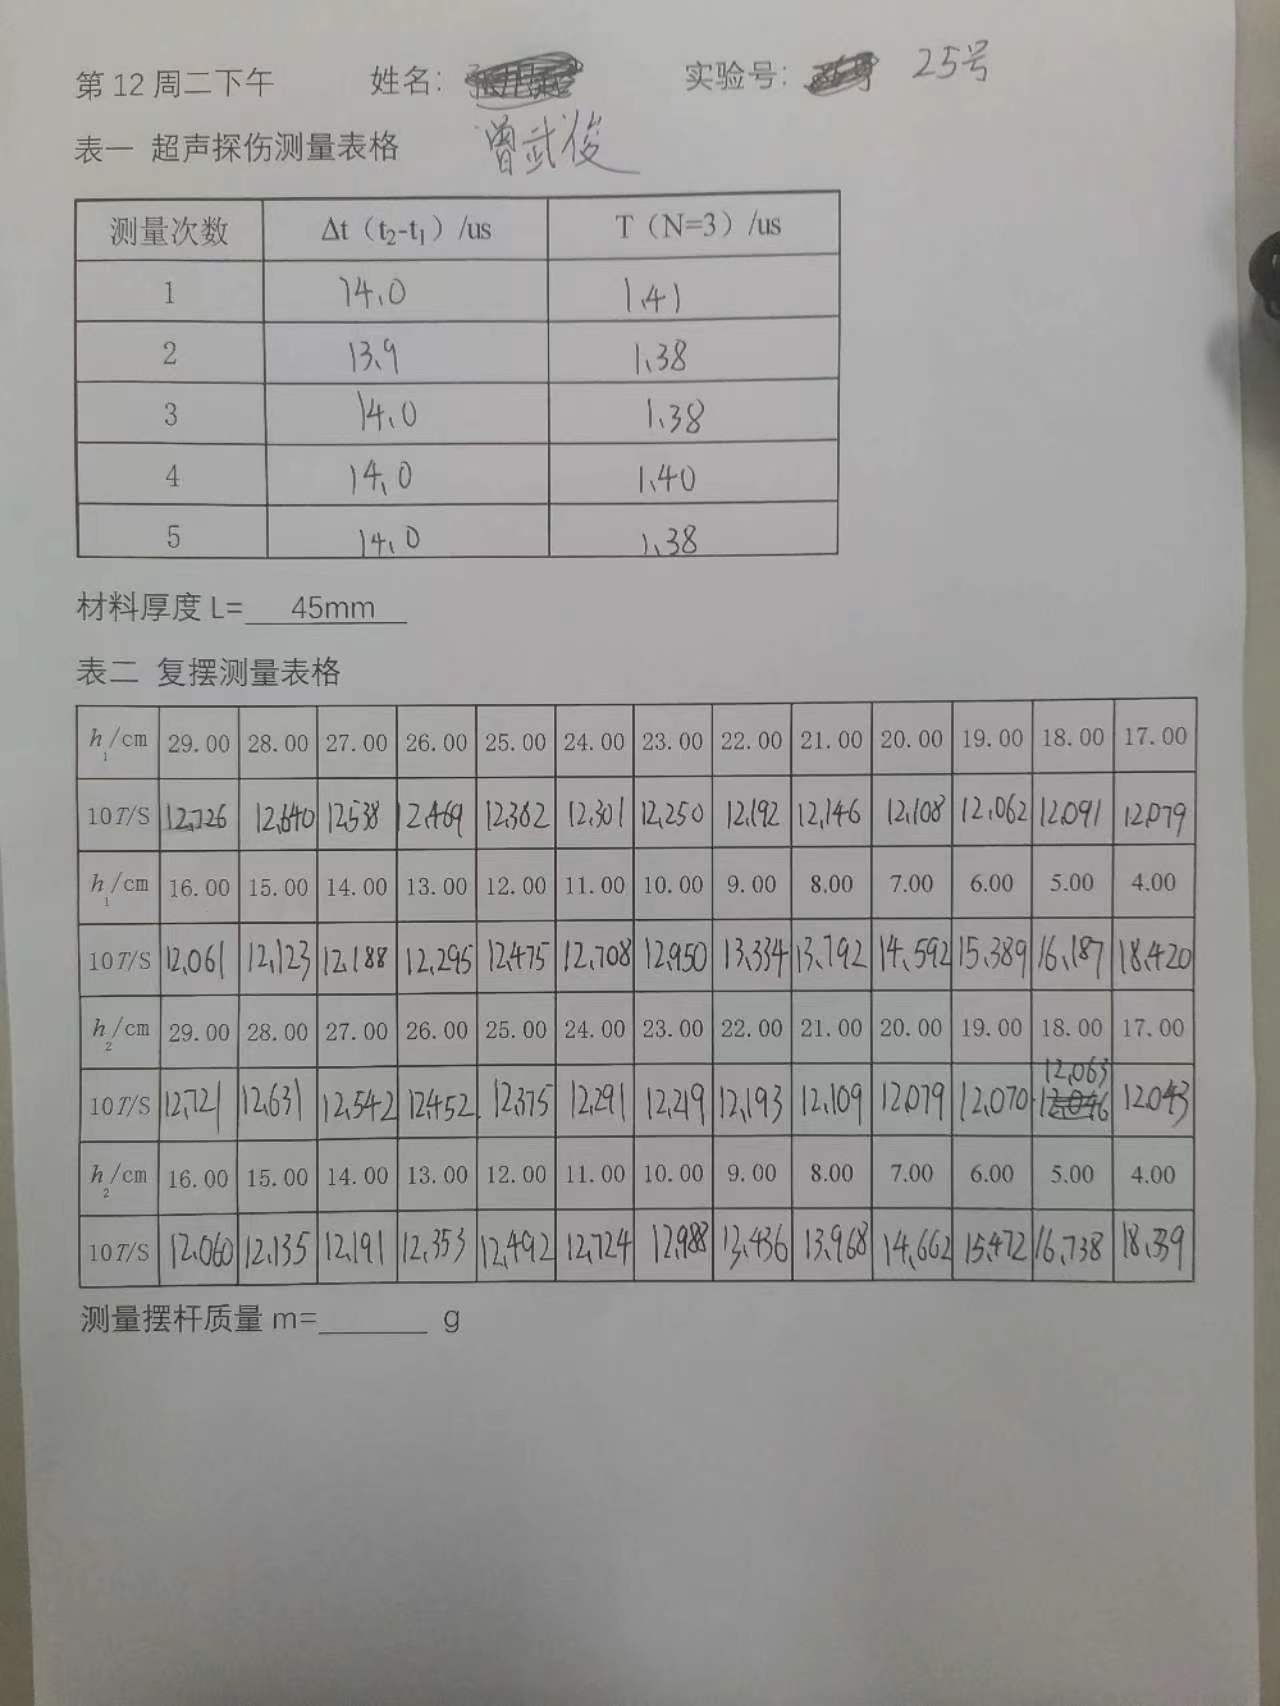 第12周二下午 姓名: 实验号: 25号
表一 超声探伤测量表格 曾武俊
测量次数 Δt（t2-t1）/us T（N=3）/us
1 14.0 1.41
2 13.9 1.38
3 14.0 1.38
4 14.0 1.40
5 14.0 1.38
材料厚度L= 45mm
表二 复摆测量表格
h1/cm 29.00 28.00 27.00 26.00 25.00 24.00 23.00 22.00 21.00 20.00 19.00 18.00 17.00
10T/S 12.726 12.640 12.538 12.469 12.382 12.301 12.250 12.192 12.146 12.108 12.062 12.091 12.079
h1/cm 16.00 15.00 14.00 13.00 12.00 11.00 10.00 9.00 8.00 7.00 6.00 5.00 4.00
10T/S 12.061 12.123 12.188 12.295 12.475 12.708 12.950 13.334 13.792 14.592 15.389 16.187 18.420
h2/cm 29.00 28.00 27.00 26.00 25.00 24.00 23.00 22.00 21.00 20.00 19.00 18.00 17.00
10T/S 12.721 12.631 12.542 12.452 12.375 12.291 12.219 12.193 12.109 12.079 12.070 12.063 12.043
h2/cm 16.00 15.00 14.00 13.00 12.00 11.00 10.00 9.00 8.00 7.00 6.00 5.00 4.00
10T/S 12.060 12.135 12.191 12.353 12.492 12.724 12.988 13.436 13.968 14.662 15.472 16.738 18.339
测量摆杆质量m=______ g